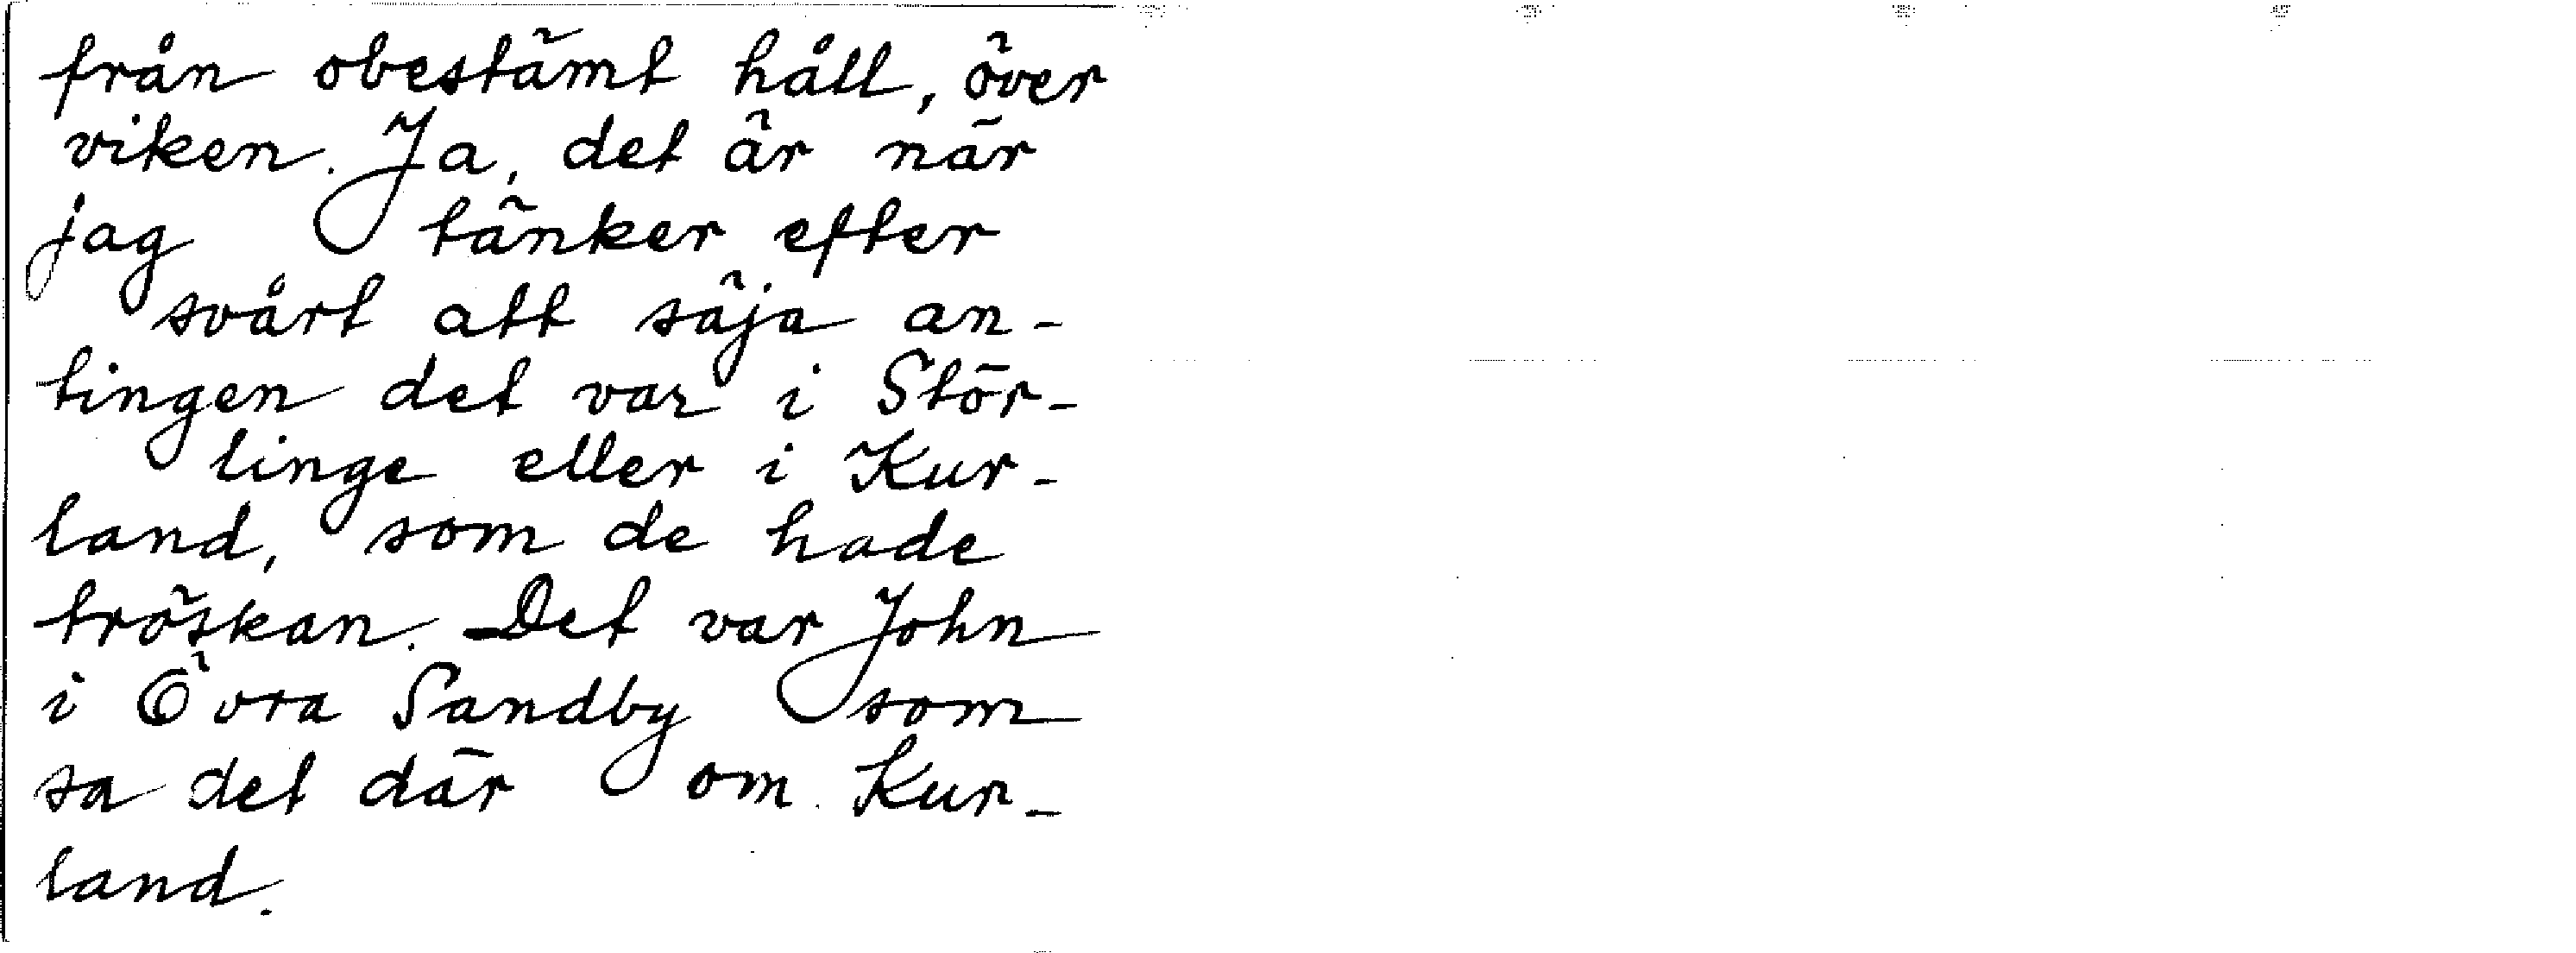 från obestämt håll, över
viken. Ja, det är när
jag tänker efter
svårt att säja an-
tingen det var i Stör-
linge eller i Kur-
land, som de hade
tröskan. Det var John
i Övra Sandby som
sa det där om Kur-
land.